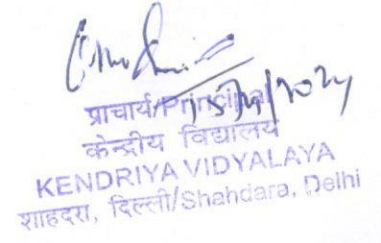 प्राचार्य/Principal
केन्द्रीय विद्यालय
KENDRIYA VIDYALAYA
शाहदरा, दिल्ली/Shahdara, Delhi